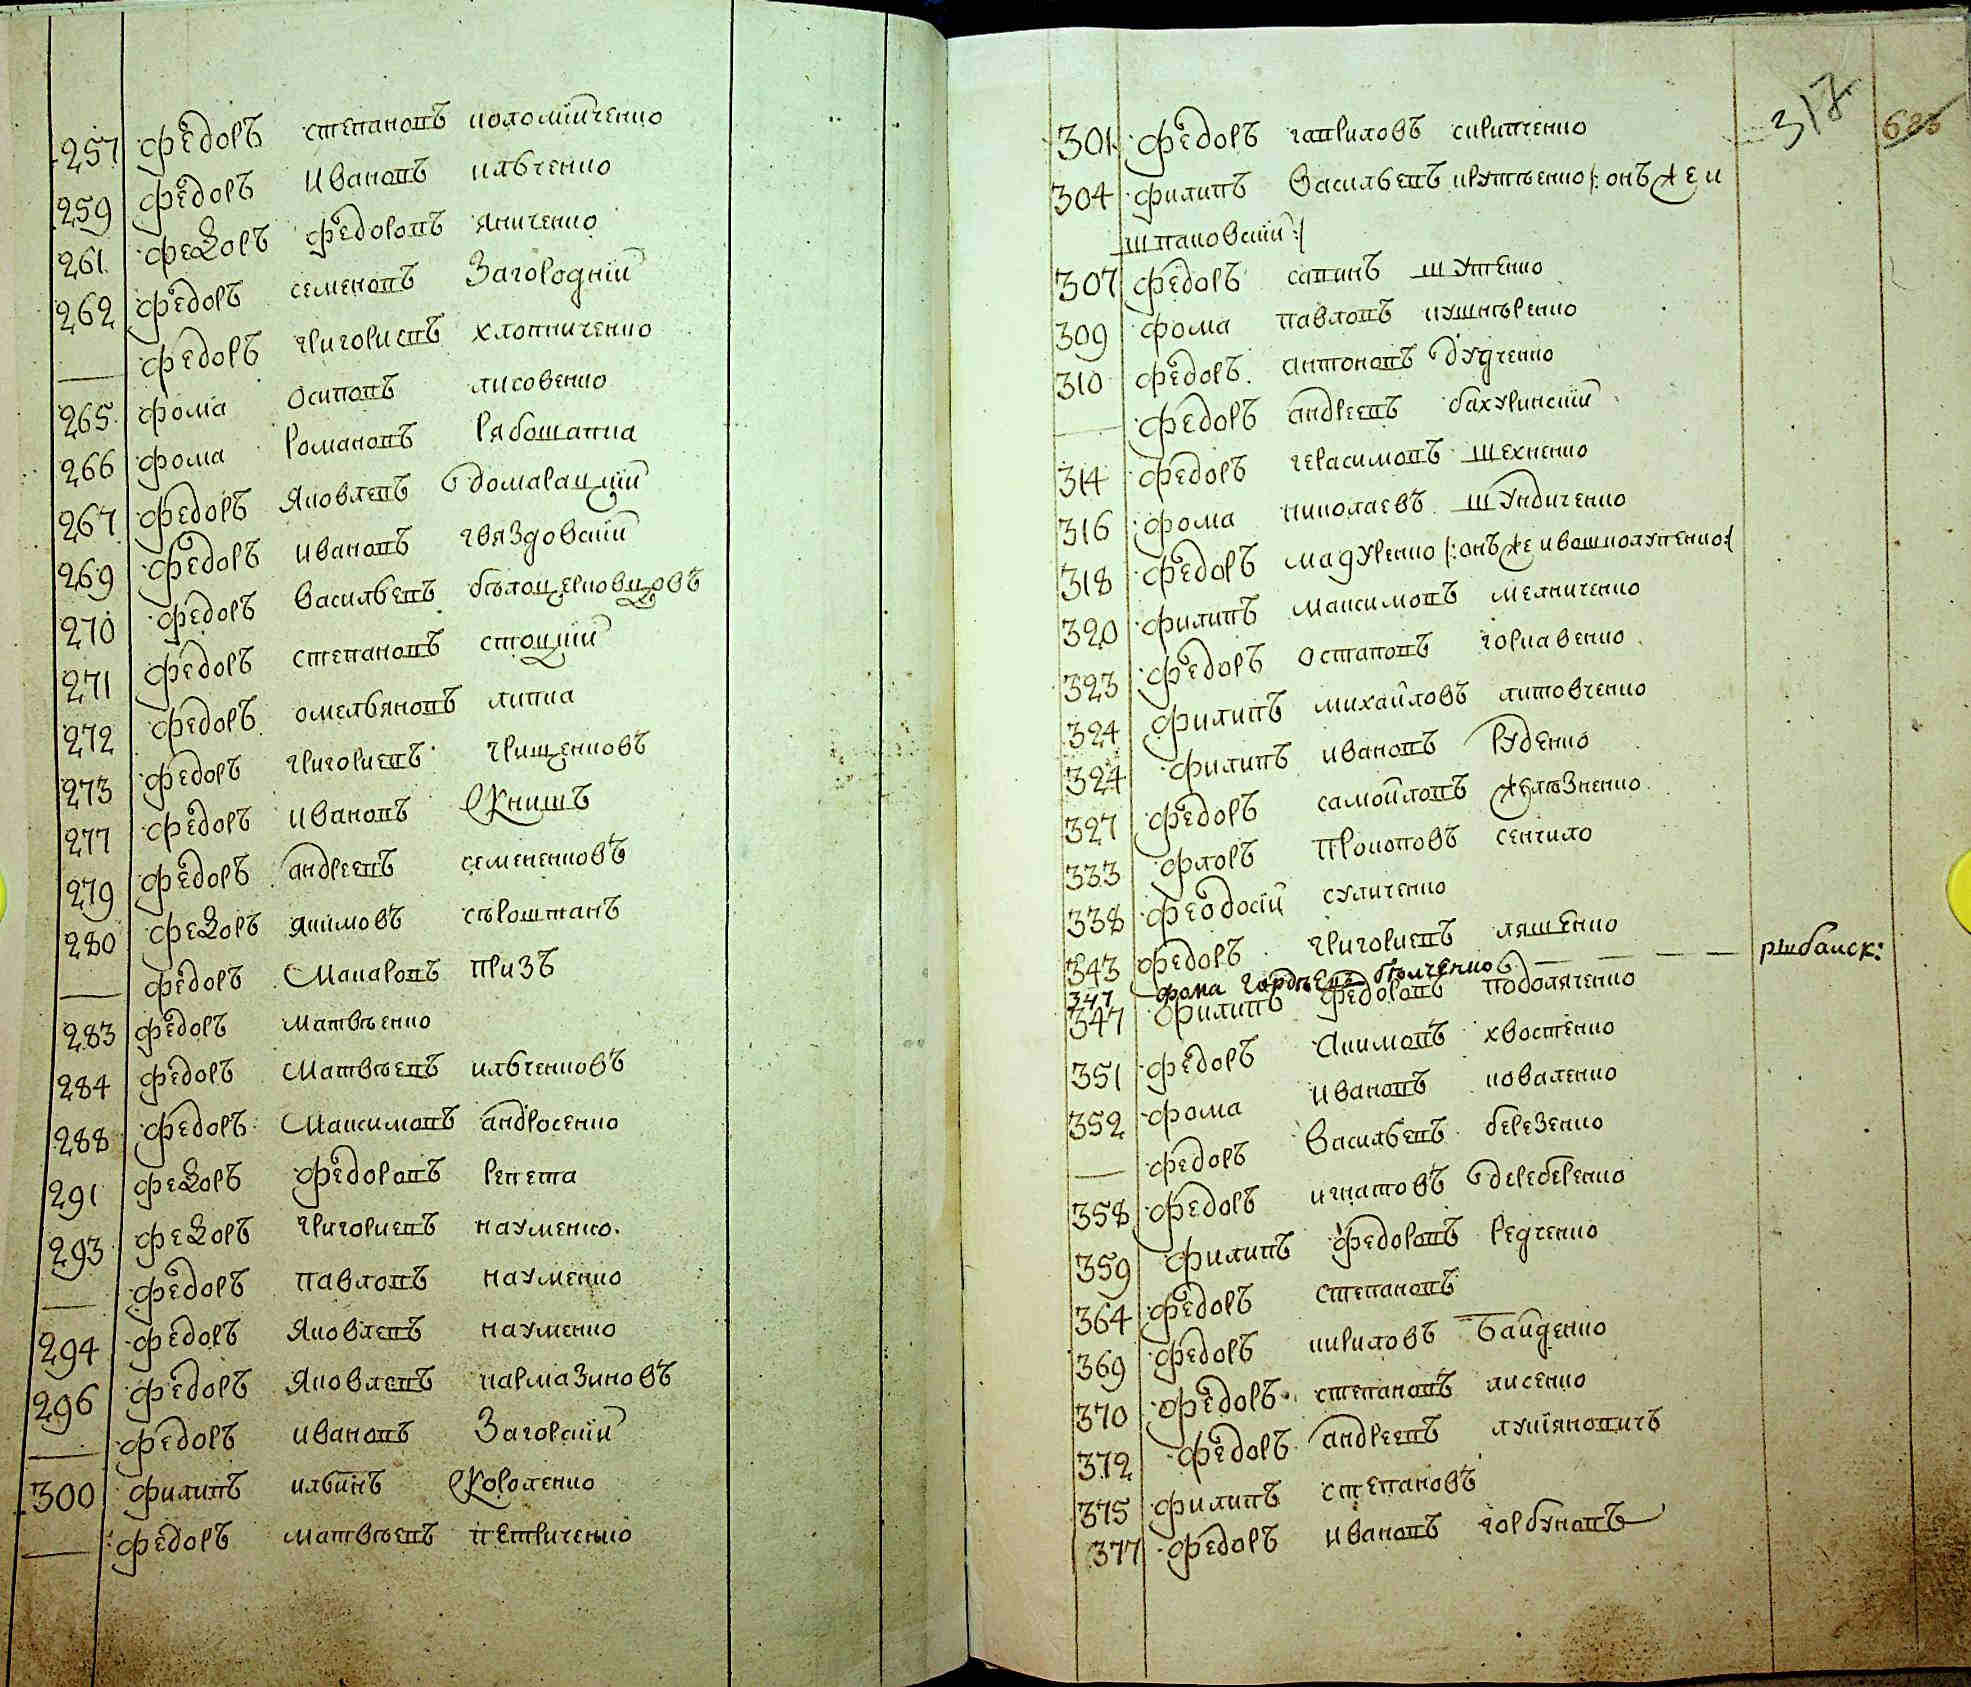 257 Федоръ степановъ коломійченко
259 Федоръ Ивановъ ильченко
261 Федоръ Федоровъ яниченко
262 Федоръ семеновъ Загородній
— Федоръ григориевъ хлопниченко
265 Фома Осиповъ лисовенко
266 Фома Романовъ Рябошапка
267 Федоръ Яковлевъ домарацкий
269 Федоръ ивановъ гвяздовский
270 Федоръ Васильевъ бѣлоцерковцовъ
271 Федоръ степановъ стоцкий
272 Федоръ омельяновъ липка
273 Федоръ григориевъ грищенковъ
277 Федоръ Ивановъ Книшъ
279 Федоръ андреевъ семененковъ
280 Федоръ якимовъ сѣроштанъ
— Федоръ Макаровъ призъ
283 Федоръ матвѣенко
284 Федоръ Матвѣевъ ильченковъ
288 Федоръ Максимовъ андросенко
291 Федоръ Федоровъ Репета
293 Федоръ григориевъ науменко.
— Федоръ павловъ науменко
294 Федоръ Яковлевъ науменко
296 Федоръ Яковлевъ кармазиновъ
— Федоръ ивановъ Загорский
300 Филипъ ильинъ Короленко
— Федоръ матвѣевъ петриченко
317
623
301 Федоръ гавриловъ скрипченко
304 Филипъ Васильевъ крутѣенко /: онъ же и
шпаковский :/
307 Федоръ савинъ шутенко
309 Фома павловъ кушнѣренко
310 Федоръ антоновъ дудченко
— Федоръ андреевъ бахуринский
314 Федоръ герасимовъ шехненко
316 Фома николаевъ шундиченко
318 Федоръ мадуренко /: онъ же ивашнолупенко :/
320 Филипъ максимовъ мелниченко
323 Федоръ Остаповъ чорнавенко
324 Филипъ михайловъ литовченко
324 Филипъ ивановъ Руденко
327 Федоръ самойловъ желѣзненко
333 Флоръ Прокоповъ сенчило
338 Феодосій суличенко
343 Федоръ григориевъ ляшенко
347 Фома гордѣевъ — — — —
347 Филипъ Федоровъ подоляченко
351 Федоръ Акимовъ хвостенко
352 Фома ивановъ коваленко
— Федоръ Васильевъ березенко
358 Федоръ игнатовъ деребенко
359 Филипъ Федоровъ Редченко
364 Федоръ степановъ
369 Федоръ кириловъ Байденко
370 Федоръ степановъ лисенко
372 Федоръ андреевъ лукіяновичъ
375 Филипъ степановъ
377 Федоръ ивановъ горбуновъ